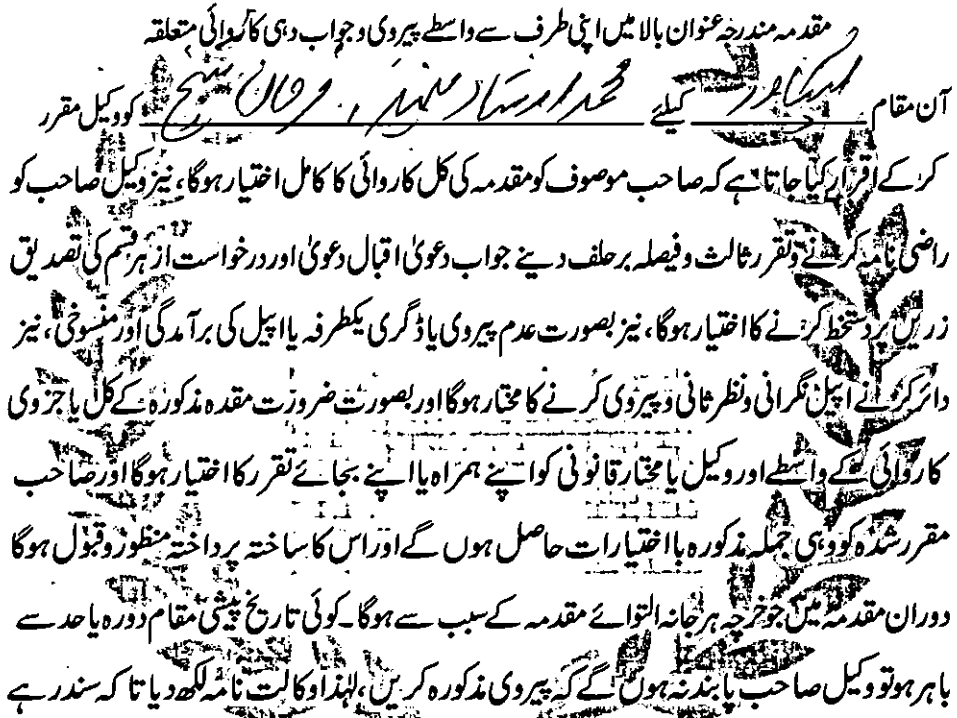 مقدمہ مندرجہ عنوان بالا میں اپنی طرف سے واسطے پیروی و جواب دہی کاروائی متعلقہ
آن مقام کیلئے محمد کو وکیل مقرر
کر کے اقرار کیا جاتا ہے کہ صاحب موصوف کو مقدمہ کی کل کاروائی کا کامل اختیار ہوگا، نیز وکیل صاحب کو
راضی نامہ کرنے و تقرر ثالث و فیصلہ بر حلف دینے جواب دعویٰ اقبال دعویٰ اور درخواست از ہر قسم کی تصدیق
زریں پر دستخط کرنے کا اختیار ہوگا، نیز بصورت عدم پیروی یا ڈگری یکطرفہ یا اپیل کی برآمدگی اور منسوخی، نیز
دائر کرنے اپیل نگرانی و نظر ثانی و پیروی کرنے کا مختار ہوگا اور بصورت ضرورت مقدہ مذکورہ کے کل یا جزوی
کاروائی کے واسطے اور وکیل یا مختار قانونی کو اپنے ہمراہ یا اپنے بجائے تقرر کا اختیار ہوگا اور صاحب
مقرر شدہ کو وہی جملہ مذکورہ بااختیارات حاصل ہوں گے اور اس کا ساختہ پرداختہ منظور و قبول ہوگا
دوران مقدمہ میں جو خرچہ ہرجانہ التوائے مقدمہ کے سبب سے ہوگا۔ کوئی تاریخ پیشی مقام دورہ یا حد سے
باہر ہو تو وکیل صاحب پابند نہ ہوں گے کہ پیروی مذکورہ کریں، لہٰذا وکالت نامہ لکھ دیا تا کہ سندر ہے